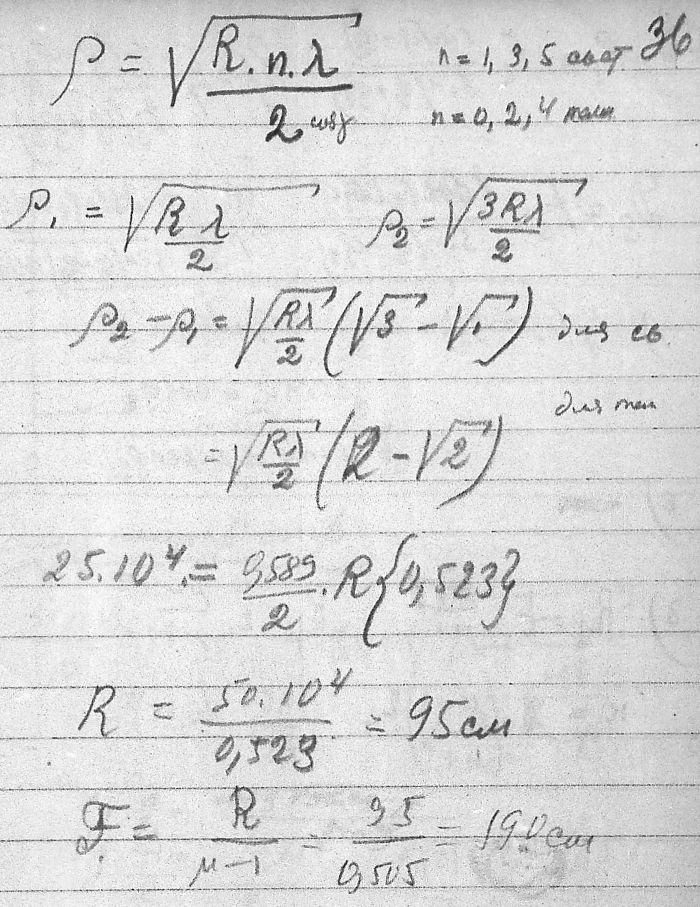 ρ = √(R.n.λ / 2 cosγ) n = 1, 3, 5 свет 36
n = 0, 2, 4 темн
ρ₁ = √(Rλ/2) ρ₂ = √(3Rλ/2)
ρ₂ − ρ₁ = √(Rλ/2) (√3 − √1) для св
для тем
= √(Rλ/2) (2 − √2)
25.10⁴ = 0,589/2 . R {0,523}
R = 50.10⁴/0,523 = 95 см
F = R/μ−1 = 95/0,505 = 190 см